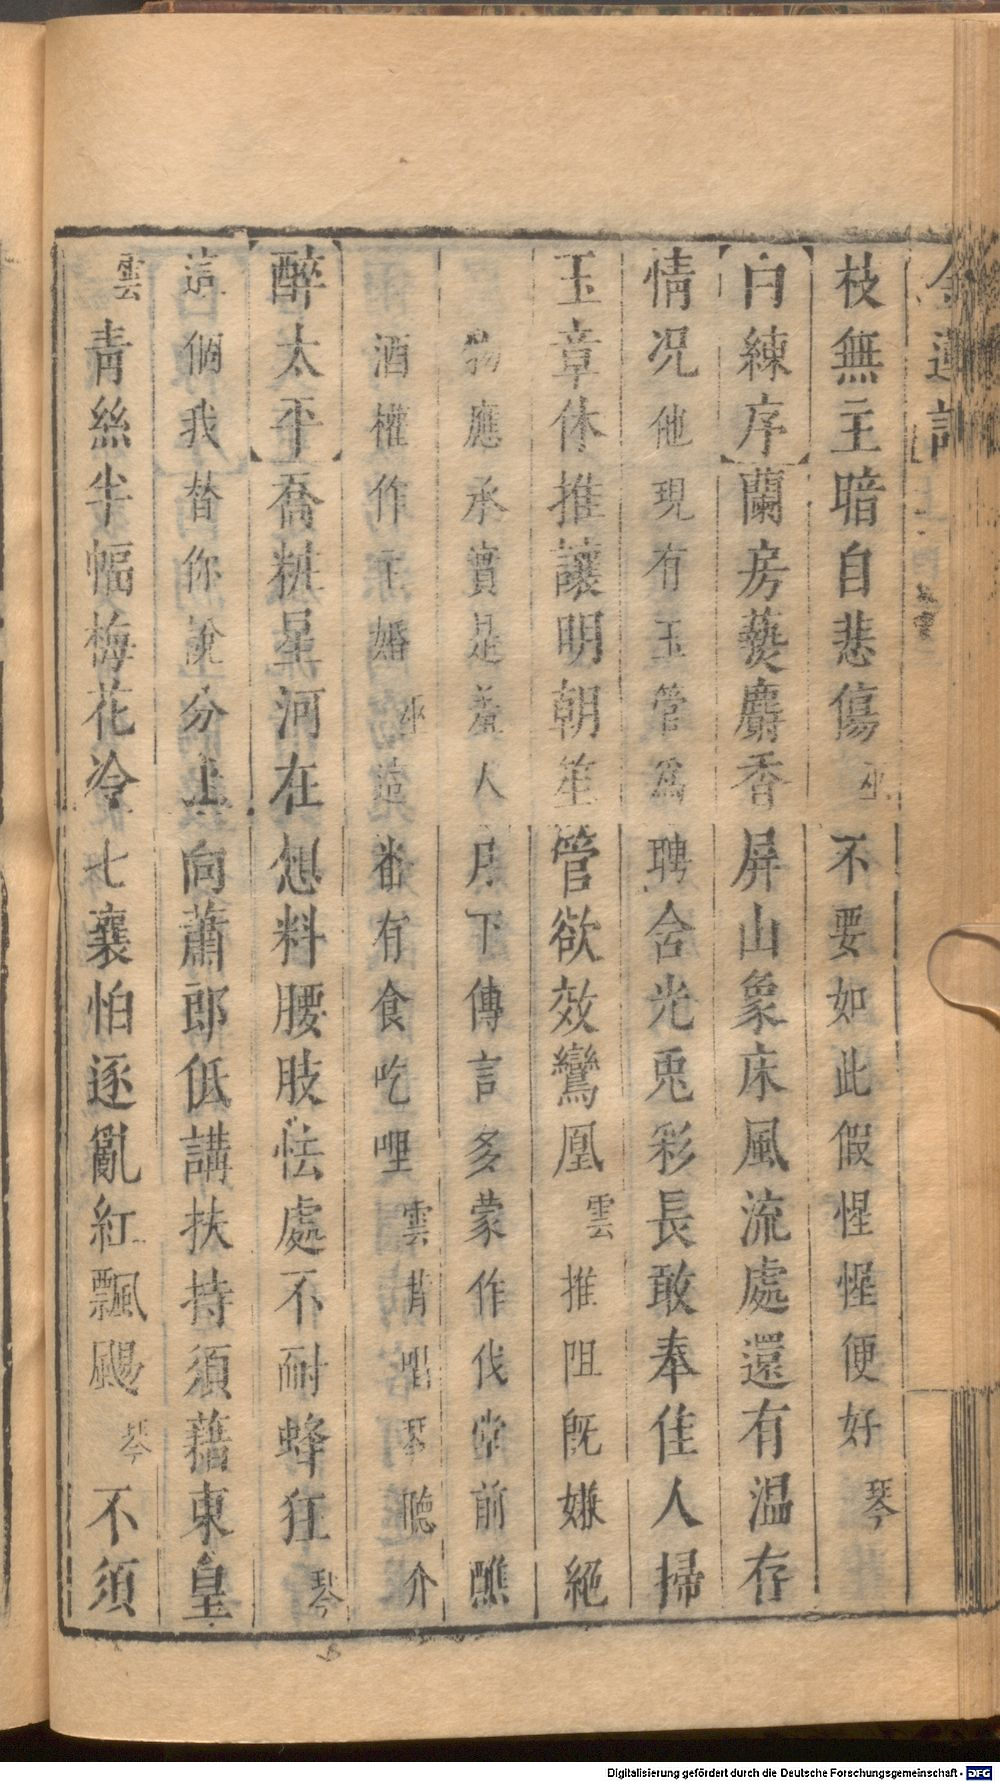 金蓮記
枝無主暗自悲傷巫不要如此假惺惺便好琴
白練序蘭房爇麝香屏山象床風流處還有温存
情況他現有玉管為聘含光兎彩長敢奉佳人掃
玉章休推讓明朝笙管欲效鸞凰雲推阻旣嫌絕
物應承實是羞人月下傳言多蒙作伐堂前醮
酒權作主婚巫這番有食吃哩雲背唱琴聽介
醉太平喬粧星河在想料腰肢怯處不耐蜂狂琴
這個我替你說分上向蕭郎低講扶持須藉東皇
雲青絲半幅梅花冷七襄怕逐亂紅飄颺琴不須
Digitalisierung gefördert durch die Deutsche Forschungsgemeinschaft - DFG